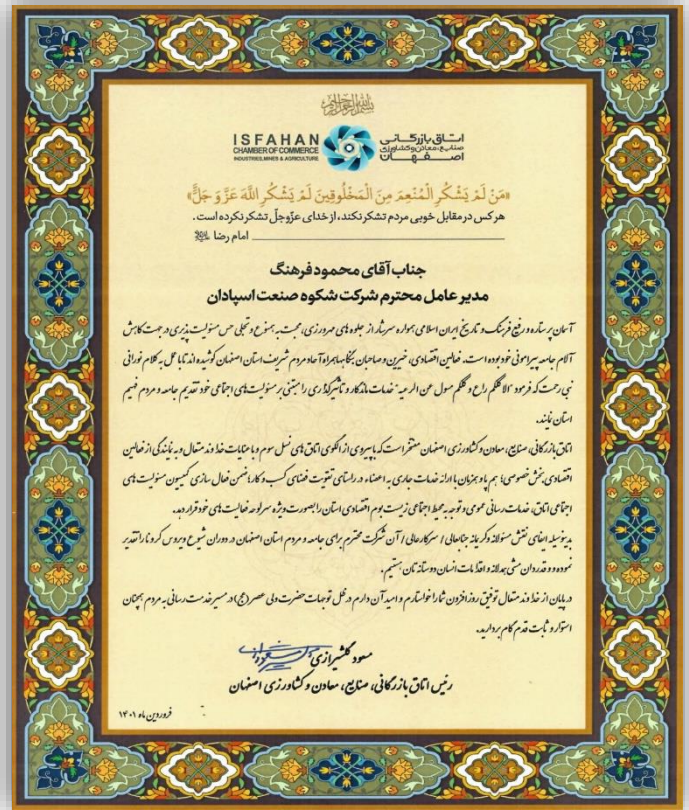 بسم الله الرحمن الرحیم
ISFAHAN
CHAMBER OF COMMERCE
INDUSTRIES, MINES & AGRICULTURE
اتاق بازرگانی
صنایع، معادن و کشاورزی
اصفهان
«مَنْ لَمْ یَشْکُرِ الْمُنْعِمَ مِنَ الْمَخْلُوقِینَ لَمْ یَشْکُرِ اللَّهَ عَزَّ وَ جَلَّ»
هر کس در مقابل خوبی مردم تشکر نکند، از خدای عزّوجلّ تشکر نکرده است.
امام رضا
جناب آقای محمود فرهنگ
مدیر عامل محترم شرکت شکوه صنعت اسپادان
آسمان پر ستاره و رفیع فرهنگ و تاریخ ایران اسلامی همواره سرشار از جلوه های مهرورزی، محبت به همنوع و تجلی حس مسئولیت پذیری در جهت کاهش
آلام جامعه پیرامونی خود بوده است. فعالین اقتصادی، خیرین و صاحبان بنگاه‌ها همراه آحاد مردم شریف استان اصفهان کوشیده اند تا با عمل به کلام نورانی
نبی رحمت که فرمود "الا کلکم راع و کلکم مسول عن الرعیه" خدمات ماندگار و تأثیرگذاری را مبتنی بر مسئولیت های اجتماعی خود تقدیم جامعه و مردم فهیم
استان نمایند.
اتاق بازرگانی، صنایع، معادن و کشاورزی اصفهان مفتخر است که با پیروی از الگوی اتاق های نسل سوم و با عنایات خداوند متعال و به نمایندگی از فعالین
اقتصادی بخش خصوصی؛ هم پا و همزمان با ارائه خدمات جاری به اعضاء، در راستای تقویت فضای کسب و کار؛ ضمن فعال سازی کمیسیون مسئولیت های
اجتماعی اتاق، خدمات رسانی عمومی و توجه به محیط اجتماعی زیست بوم اقتصادی استان را بصورت ویژه سرلوحه فعالیت های خود قرار دهد.
بدینوسیله ایفای نقش مسئولانه و کریمانه جنابعالی / سرکار عالی / آن شرکت محترم برای جامعه و مردم استان اصفهان در دوران شیوع ویروس کرونا را تقدیر
نموده و قدردان مشی همدلانه و اقدامات انسان دوستانه تان هستیم.
در پایان از خداوند متعال توفیق روز افزون شما را خواستارم و امید آن دارم در ظل توجهات حضرت ولی عصر (عج) در مسیر خدمت رسانی به مردم همچنان
استوار و ثابت قدم گام بردارید.
مسعود گلشیرازی
رئیس اتاق بازرگانی، صنایع، معادن و کشاورزی اصفهان
فروردین ماه ۱۴۰۱